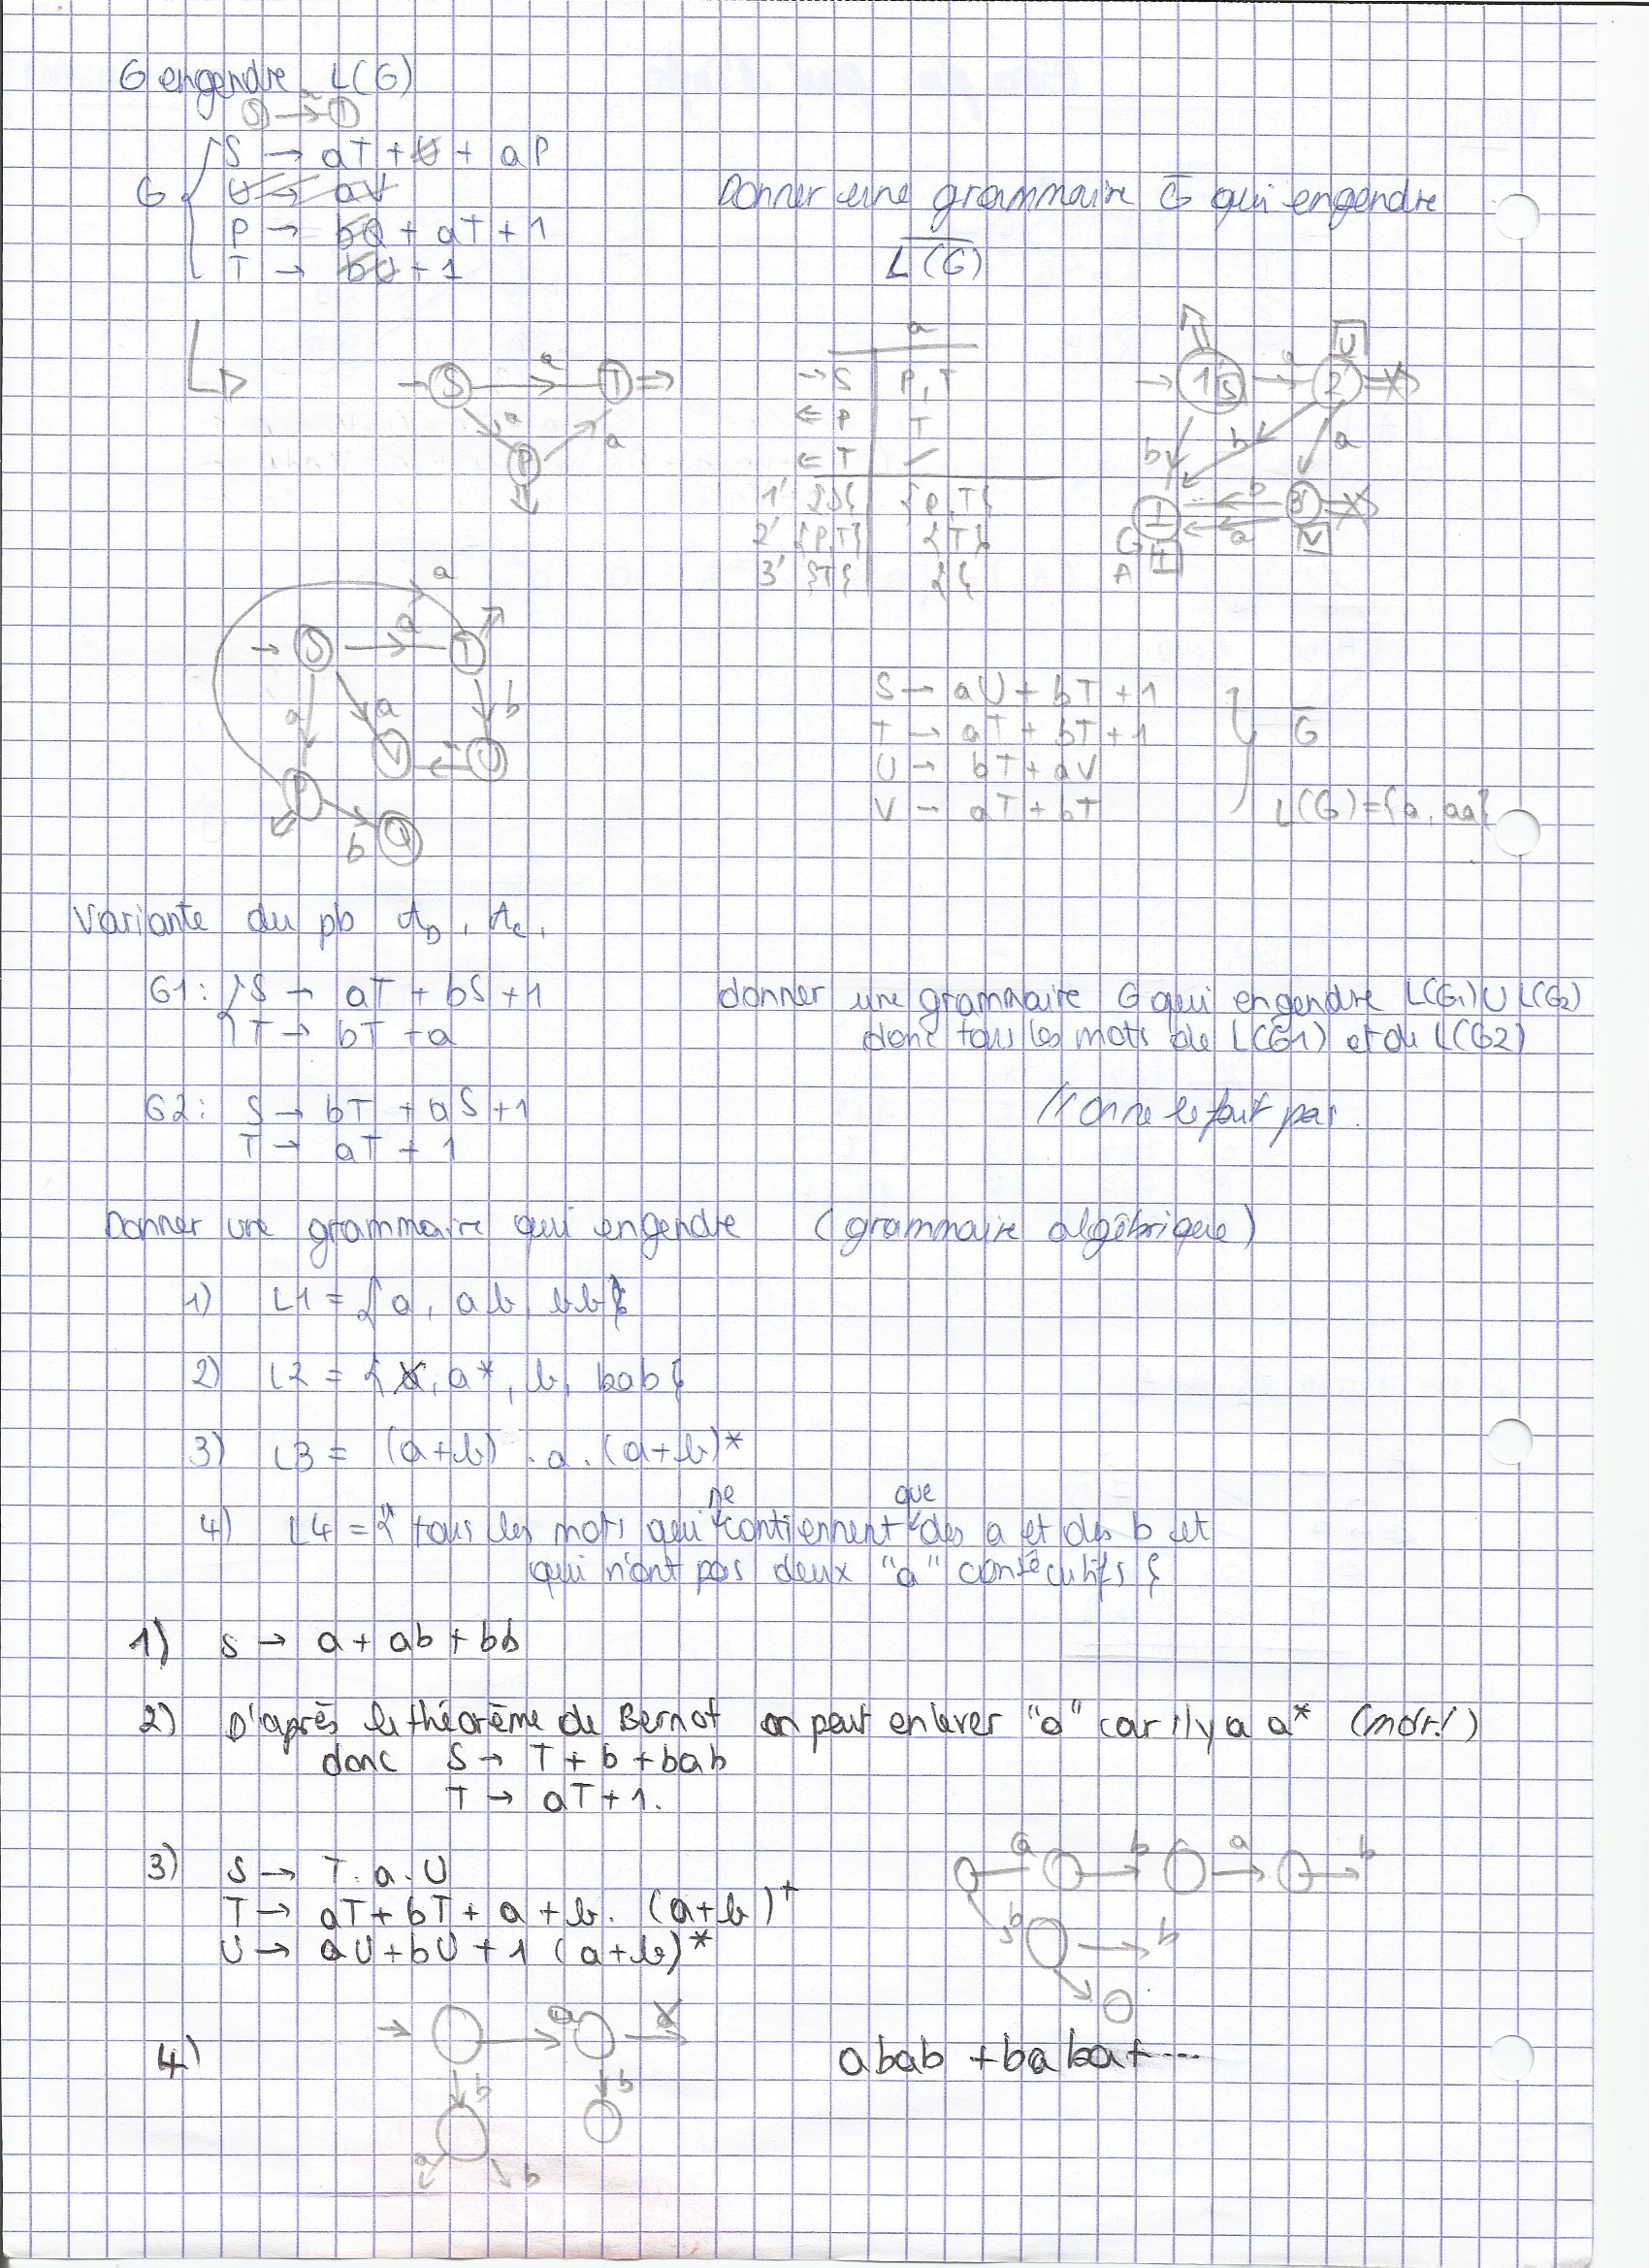 G engendre L(G)
S → aT + U + aP
G U → aV
P → bQ + aT + 1
T → bU + 1
Donner une grammaire G̅ qui engendre
L(G)
S a T
P a a
a
→ S P, T
← P T
← T
1' {S} {P,T}
2' {P,T} {T}
3' {T} { }
1 S a 2 U
b b a
3 V b a
a
S a T
a a b
V U
P b Q
S → aU + bT + 1
T → aT + bT + 1
U → bT + aV
V → aT + bT
G̅
L(G) = {a, aa}
Variante du pb AD, Ac,
G1: S → aT + bS + 1
T → bT + a
donner une grammaire G qui engendre L(G1) U L(G2)
donc tous les mots de L(G1) et du L(G2)
G2: S → bT + aS + 1
T → aT + 1
// on ne le fait pas.
Donner une grammaire qui engendre (grammaire algébrique)
1) L1 = {a, ab, bb}
2) L2 = {a, a*, b, bab}
3) L3 = (a+b) . a . (a+b)*
4) L4 = { tous les mots qui ne contiennent que des a et des b et
qui n'ont pas deux "a" consécutifs }
1) S → a + ab + bb
2) D'après le théorème de Bernot on peut enlever "a" car il y a a* (mdr!)
donc S → T + b + bab
T → aT + 1.
3) S → T . a . U
T → aT + bT + a + b. (a+b)+
U → aU + bU + 1 (a+b)*
a b a b
b b
4) a a
b b
a b
abab + baba + ...